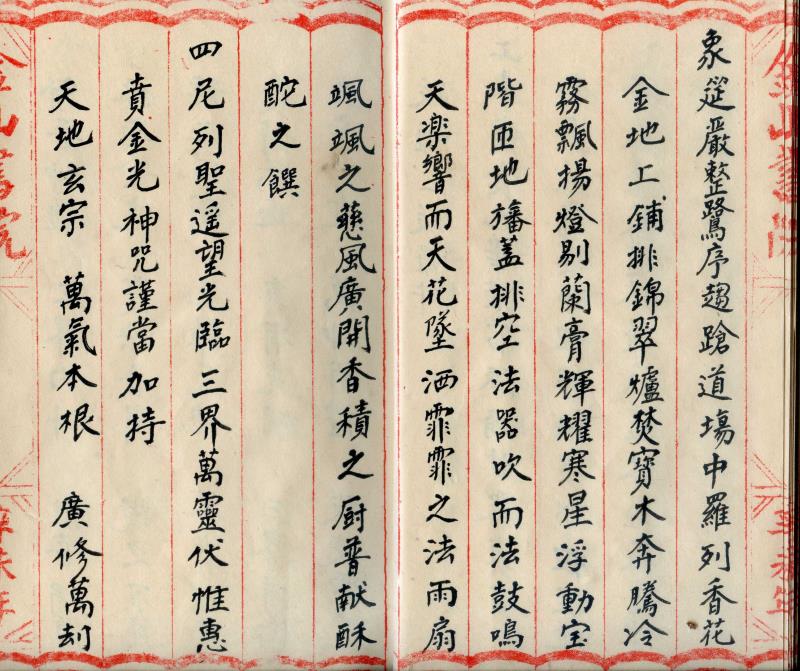 象筵嚴整鷺序趨蹌道場中羅列香花
金地上鋪排錦翠爐焚寶木奔騰冷
霧飄揚燈剔蘭膏輝耀寒星浮動宝
階匝地旛蓋排空法器吹而法鼓鳴
天楽響而天花墜洒霏霏之法雨扇
颯颯之慈風廣開香積之厨普献酥
酡之饌
四尼列聖遥望光臨三界萬靈伏惟惠
賁金光神咒謹當加持
天地玄宗 萬氣本根 廣修萬刼